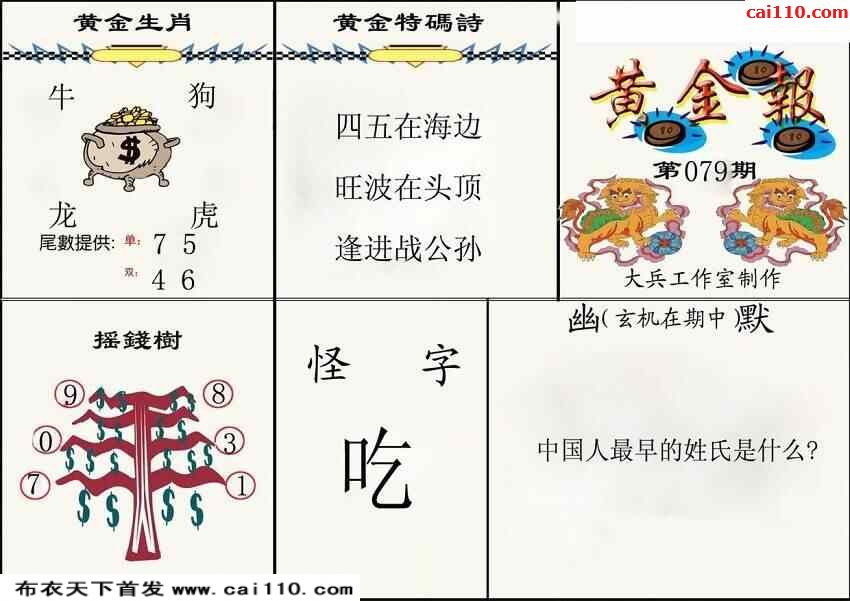 cai110.com
黄金生肖
牛 狗
$
龙 虎
尾數提供: 单: 7 5
双: 4 6
黄金特碼詩
四五在海边
旺波在头顶
逢进战公孙
黄金報
80
80
80
第079期
大兵工作室制作
摇錢樹
9 8
0 3
7 1
怪 字
吃
幽(玄机在期中)默
中国人最早的姓氏是什么?
布衣天下首发 www.cai110.com